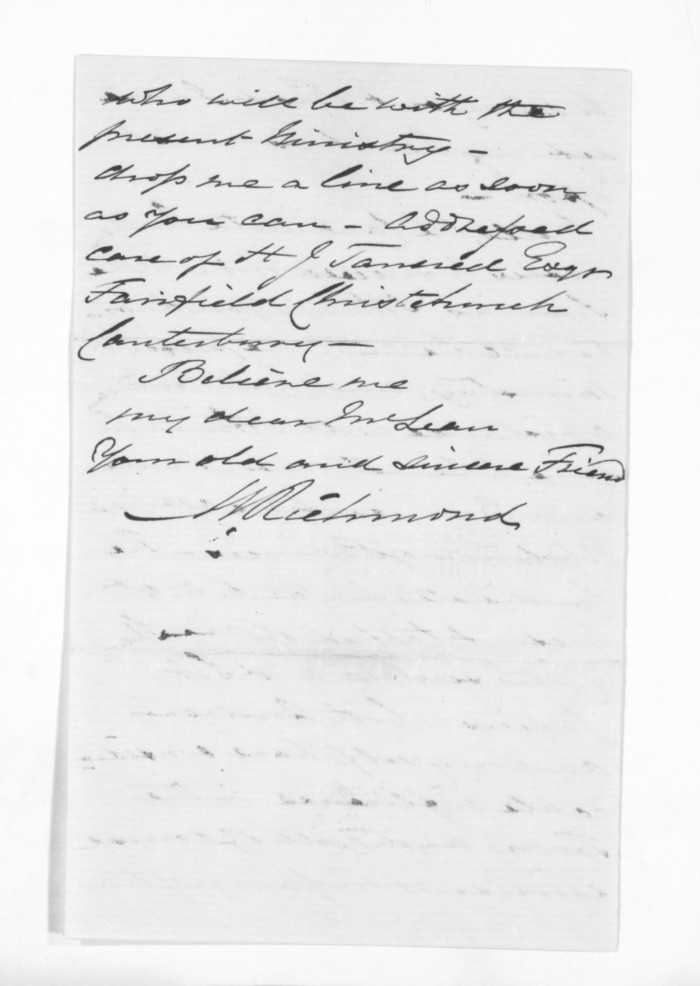 who will be with the
present Ministry –
drop me a line as soon
as you can – Addressed
care of H J Tancred Esqr
Fairfield Christchurch
Canterbury –
Believe me
my dear McLean
Your old and sincere Friend
Richmond